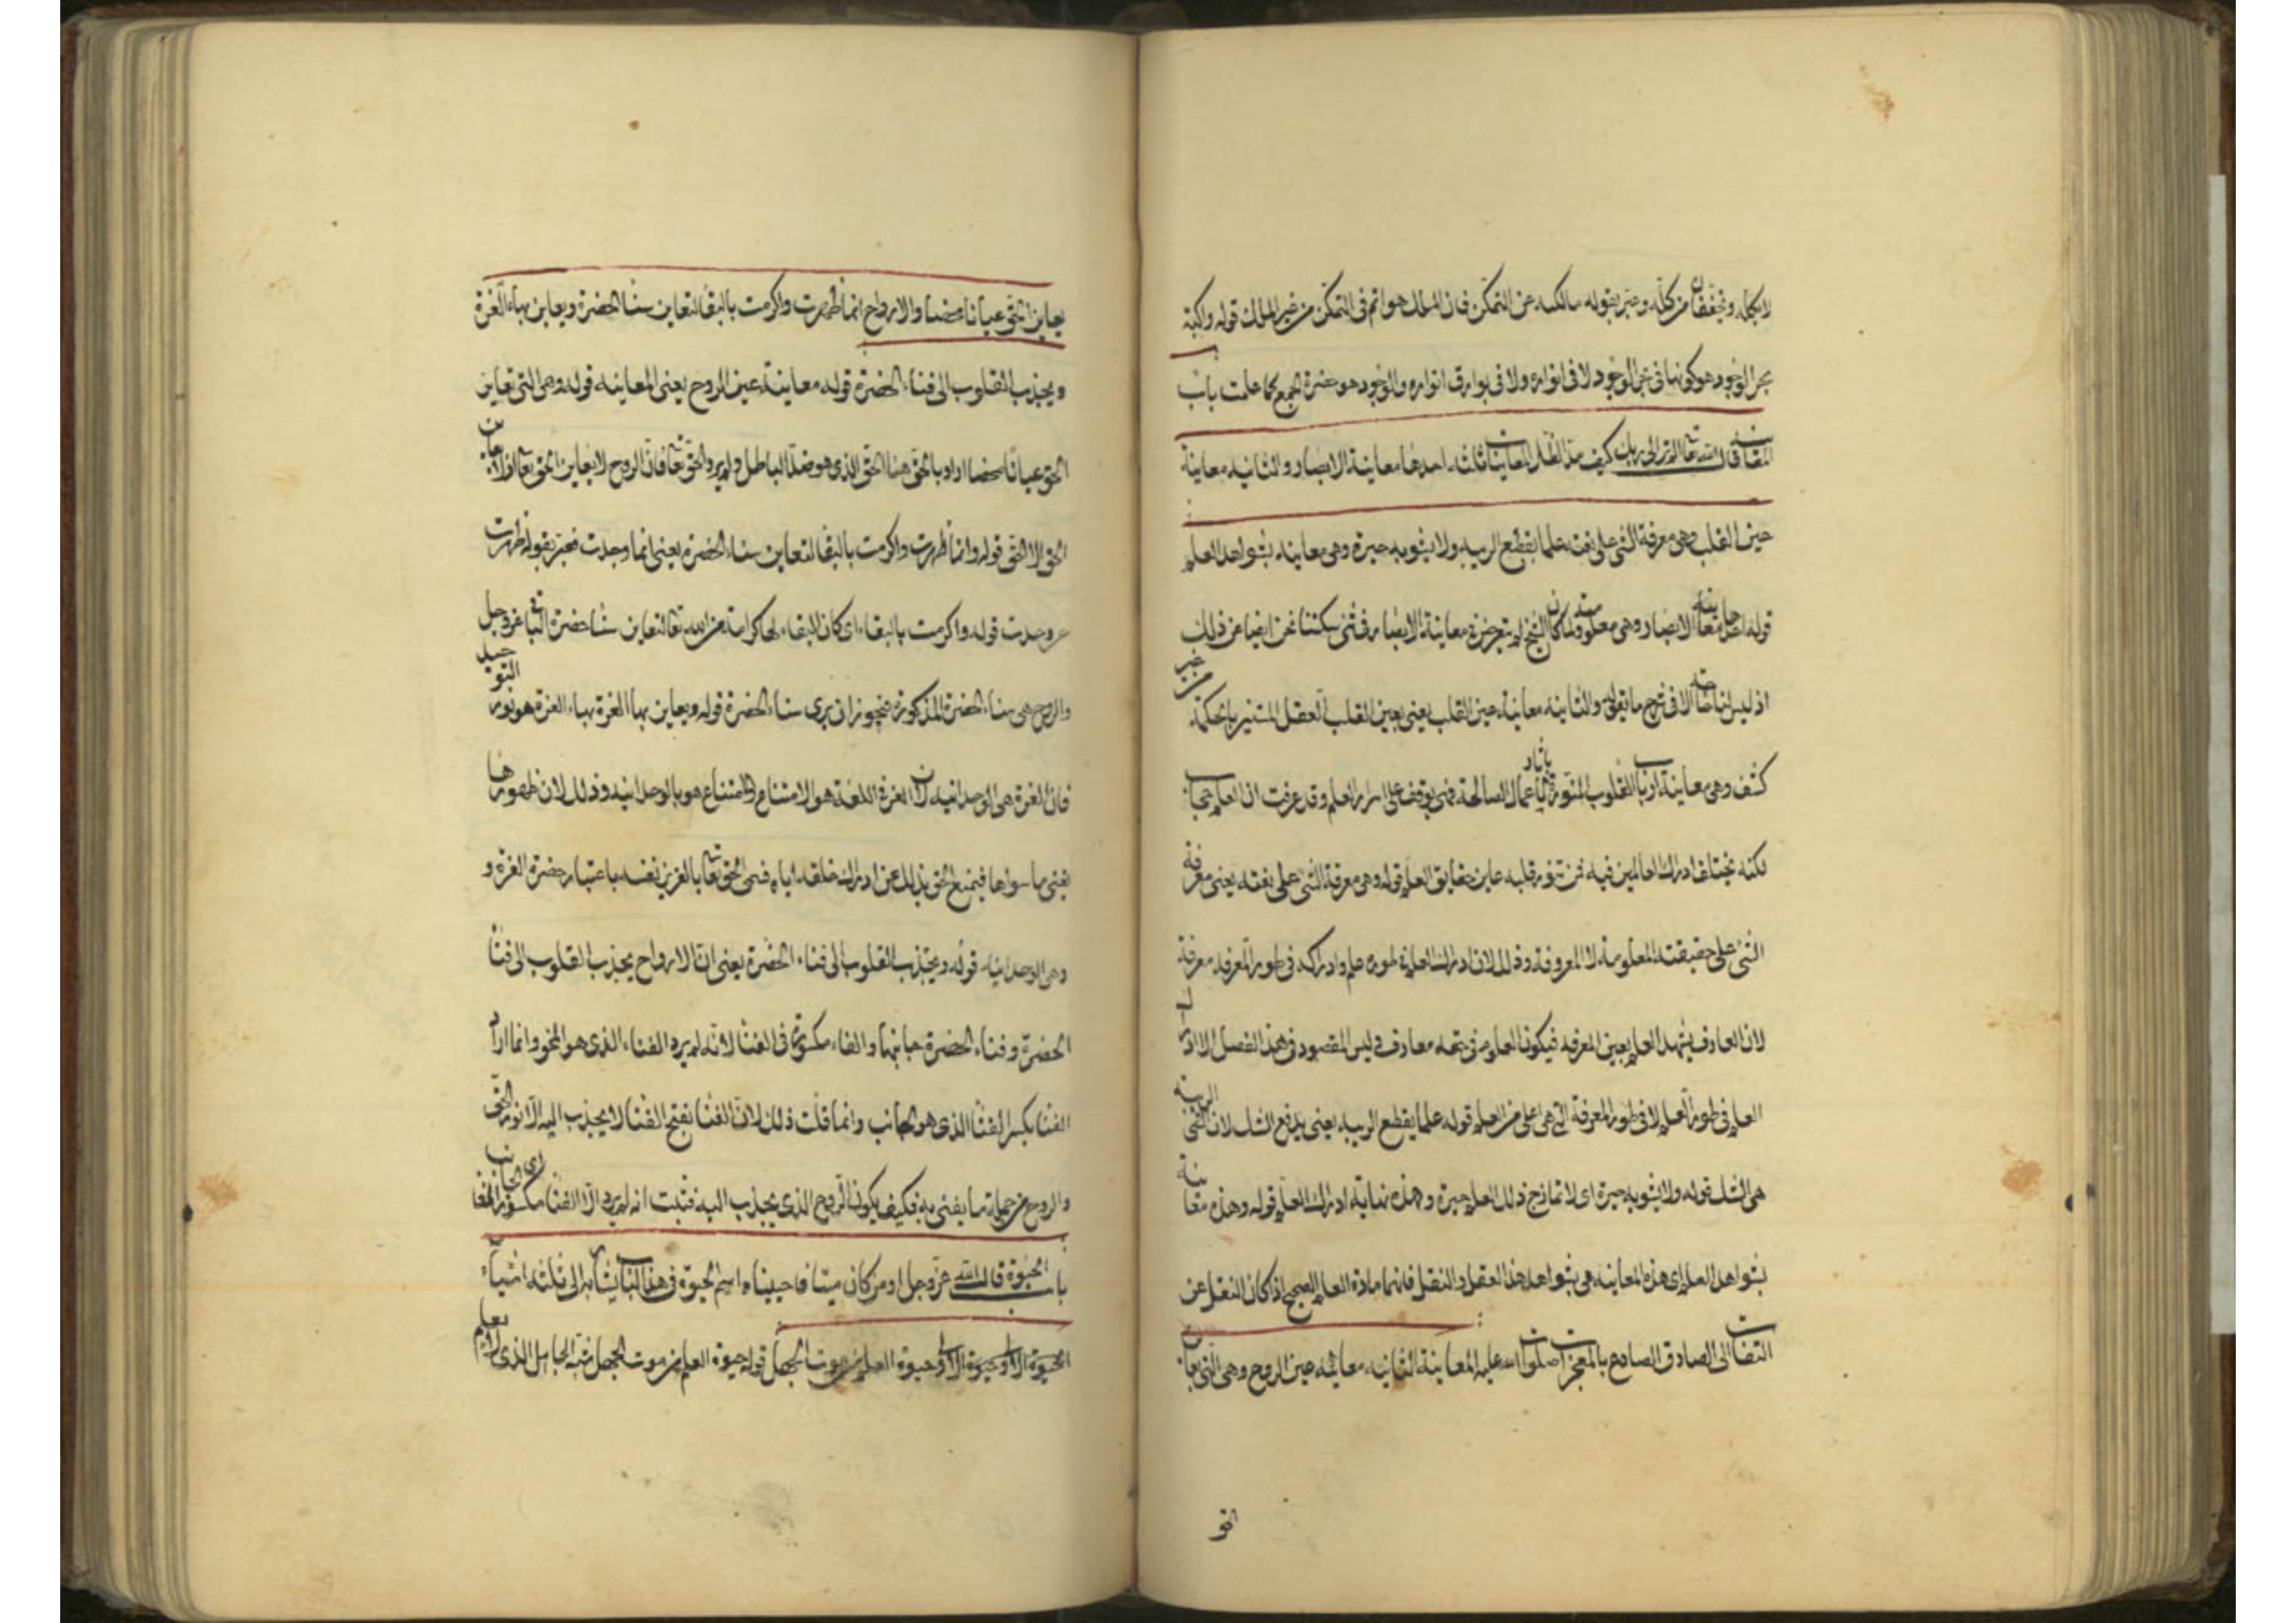 بحر الوجود هو كونها في بحر الوجود لا في انواره ولا في بوارق انواره والوجود هو حضرة الجمع كما علمت باب
المعاينة قال الله تعا الم تر الى ربك كيف مد الظل المعاينات ثلث احدها معاينة الابصار والثانيه معاينة
عين القلب وهي معرفة الشئ على نعته علما يقطع الريبه ولا يشوبه حيرة وهي معاينه بشواهد العلم
قوله احدها معاينة الابصار وهي معلومة ولما كان الشيخ لم يتعرض في معاينة الابصار في شئ سكتنا نحن ايضا عن ذلك
اذ ليس لنا حاجة الا في شرح ما يقوله والثانيه معاينة عين القلب يعني بعين القلب العقل المستنير بالحكمة من غير
كشف وهي معاينة ارباب القلوب المنورة باثار الاعمال الصالحة فهي توقف على اسرار العلم وقد عرفت ان العلم حجاب
لكنه يختلف ادراك العالمين فيه فمن تنور قلبه عاين حقايق العلم قوله وهي معرفة الشئ على نعته يعني معرفة
الشئ على حقيقته المعلومة لا المعروفة وذلك لان ادراك العلم في طوره علم وادراكه في طور المعرفه معرفة
لان العارف يشهد العلم بعين المعرفه فيكون العلوم في حقه معارف وليس المقصود في هذا الفصل الا ادراك
العلم في طور العلم لا في طور المعرفة التي هي اعلى من العلم قوله علما يقطع الريبه يعني يدفع الشك لان الريبه
هي الشك قوله ولا يشوبه حيرة اي لا تمازج ذلك العلم حيرة وهذه نهاية ادراك العلم قوله وهذه معاينة
بشواهد العلم اي هذه المعاينه هي بشواهد هذا العقل والنقل فانهما مادة العلم الصحيح اذا كان النقل عن
الثقات الى الصادق الصادع بالمعجزات صلوات الله عليه المعاينة الثانيه معاينة عين الروح وهي التي تعاين
الحق
يعاين الحق عيانا محضا والارواح انما طهرت واكرمت بالبقا لتعاين سنا الحضرة ويعاين بهاء العزة
ويجذب القلوب الى فناء الحضرة قوله معاينة عين الروح يعني المعاينه قوله وهي التي تعاين
الحق عيانا محضا اراد بالحق هنا الحق الذي هو ضد الباطل ولم يرد الحق تعا فان الروح لا يعاين الحق تعا اذ لا يعاين
الحق الا الحق قوله وانما طهرت واكرمت بالبقا لتعاين سناء الحضرة يعني انما وجدت فعبر بقوله طهرت
عن وجدت قوله واكرمت بالبقاء اي كان البقاء لها كرامة من الله تعا لتعاين سنا حضرة البقا عز وجل
والروح هي سناء الحضرة المذكورة فيجوز ان يرى سناء الحضرة قوله ويعاين بها العزة بهاء العزة هو نور التوحيد
فان العزة هي الوحدانية لان العزة في اللغة هو الامتناع والامتناع هو بالوحدانيه وذلك لان ظهورها
يفنى ما سواها فيمنع الحق بذلك عن ادراك خلقه اياه فسمى الحق تعا بالعزيز نفسه باعتبار حضرة العزة و
وهي الوحدانيه قوله ويجذب القلوب الى فناء الحضرة يعني ان الارواح يجذب القلوب الى فنا
الحضرة وفناء الحضرة جانبها والفاء مكسورة في الفنا لانه لم يرد الفناء الذي هو المحو وانما اراد
الفنا بكسر الفنا الذي هو الجانب وانما قلت ذلك لان الفنا بفتح الفنا لا يجذب اليه الا نور الحق
والروح من جملة ما يفنى به فكيف يكون الروح الذي يجذب اليه فثبت انه لم يرد الا الفنا مكسور الفا اي الجانب
باب الحيوة قال الله عز وجل اومن كان ميتا فاحييناه اسم الحيوة في هذا الباب يشار به الى ثلثه اشياء
الحيوة الاولى حيوة العلم من موت الجهل قوله حيوة العلم من موت الجهل شبه الجاهل الذي لا يعلم